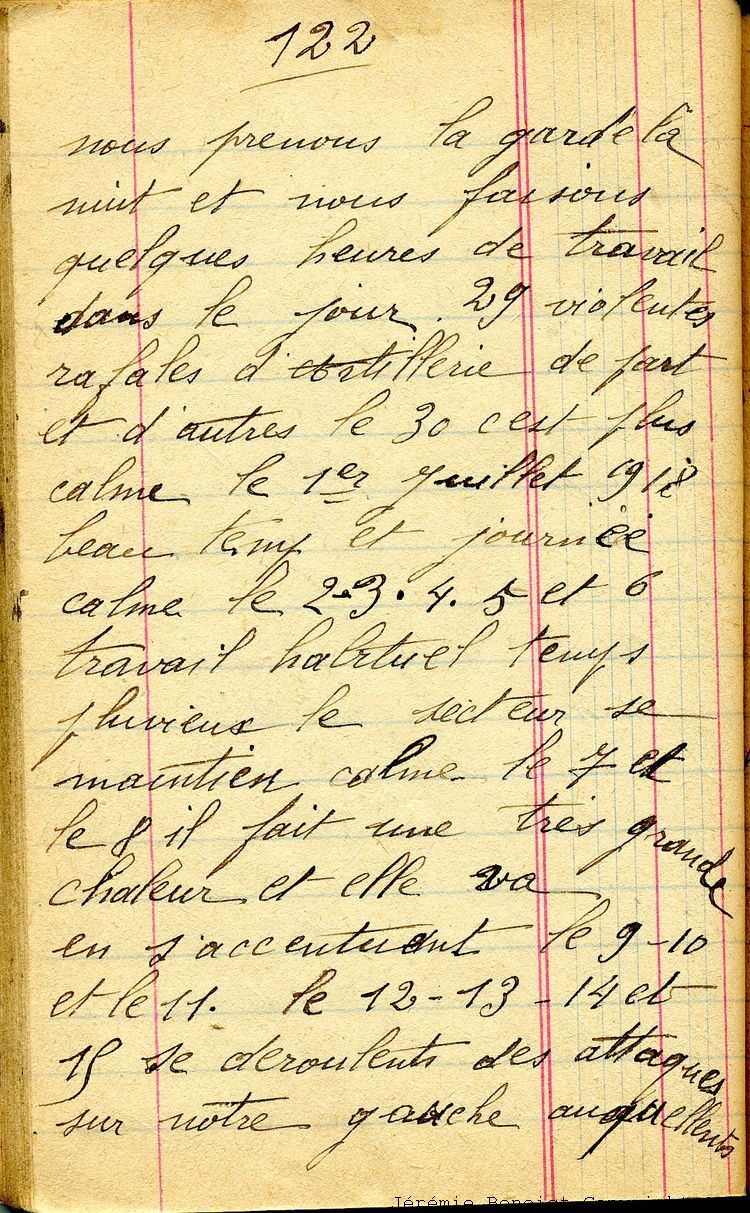 122
nous prenons la garde la
nuit et nous faisons
quelques heures de travail
dans le jour. 29 violentes
rafales d'artillerie de part
et d'autres le 30 c'est plus
calme le 1er Juillet 1918
beau temp et journéé
calme le 2-3. 4. 5 et 6
travail habituel temps
pluvieux le secteur se
maintien calme le 7 et
le 8 il fait une très grande
chaleur et elle va
en s'accentuant le 9-10
et le 11. le 12-13-14 et
15 se deroulents des attaques
sur notre gauche auquellents
Jérémie Benoist